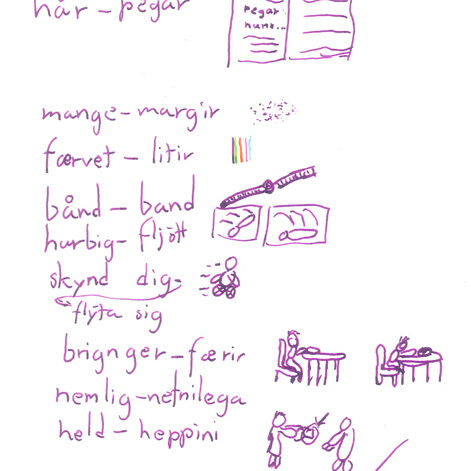 hår - þegar
þegar
hund...
mange - margir
færvet - litir
bånd - band
hurbig - fljótt
skynd dig -
flýta sig
brignger - færir
nemlig - nefnilega
held - heppini